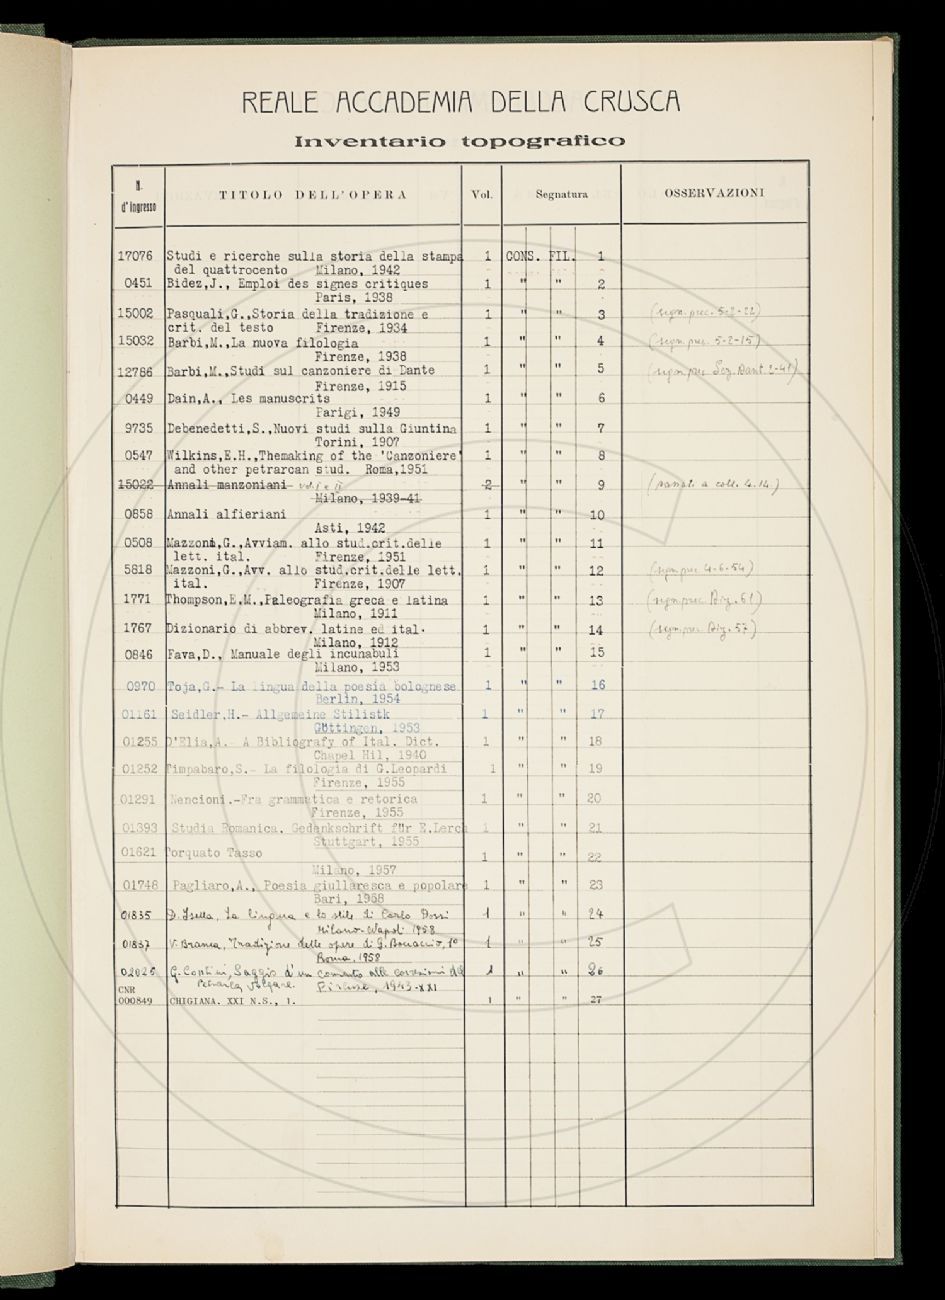 REALE ACCADEMIA DELLA CRUSCA
Inventario topografico
N. d'ingresso TITOLO DELL'OPERA Vol. Segnatura OSSERVAZIONI
17076 Studi e ricerche sulla storia della stampa 1 CONS. FIL. 1
del quattrocento Milano, 1942
0451 Bidez,J., Emploi des signes critiques 1 " " 2
Paris, 1938
15002 Pasquali,G.,Storia della tradizione e 1 " " 3 (segn. prec. 5-2-22)
crit. del testo Firenze, 1934
15032 Barbi,M.,La nuova filologia 1 " " 4 (segn. prec. 5-2-15)
Firenze, 1938
12786 Barbi,M.,Studi sul canzoniere di Dante 1 " " 5 (segn. prec. Sez. Dant. 2-41)
Firenze, 1915
0449 Dain,A., Les manuscrits 1 " " 6
Parigi, 1949
9735 Debenedetti,S.,Nuovi studi sulla Giuntina 1 " " 7
Torini, 1907
0547 Wilkins,E.H.,Themaking of the 'Canzoniere' 1 " " 8
and other petrarcan stud. Roma,1951
15022 Annali manzoniani vol. I e II 2 " " 9 (passati a coll. 4.14.)
Milano, 1939-41
0858 Annali alfieriani 1 " " 10
Asti, 1942
0508 Mazzoni,G.,Avviam. allo stud.crit.delle 1 " " 11
lett. ital. Firenze, 1951
5818 Mazzoni,G.,Avv. allo stud.crit.delle lett. 1 " " 12 (segn. prec. 4-6-54)
ital. Firenze, 1907
1771 Thompson,E.M.,Paleografia greca e latina 1 " " 13 (segn. prec. Biz. 61)
Milano, 1911
1767 Dizionario di abbrev. latine ed ital. 1 " " 14 (segn. prec. Biz. 57)
Milano, 1912
0846 Fava,D., Manuale degli incunabuli 1 " " 15
Milano, 1953
0970 Toja,G.- La lingua della poesia bolognese 1 " " 16
Berlin, 1954
01161 Seidler,H.- Allgemeine Stilistk 1 " " 17
Göttingen, 1953
01255 D'Elia,A.- A Bibliografy of Ital. Dict. 1 " " 18
Chapel Hil, 1940
01252 Timpabaro,S.- La filologia di G.Leopardi 1 " " 19
Firenze, 1955
01291 Nencioni.-Fra grammatica e retorica 1 " " 20
Firenze, 1955
01393 Studia Romanica. Gedenkschrift für E.Lerch 1 " " 21
Stuttgart, 1955
01621 Torquato Tasso 1 " " 22
Milano, 1957
01748 Pagliaro,A., Poesia giullaresca e popolare 1 " " 23
Bari, 1958
01835 D. Isella, La lingua e lo stile di Carlo Dossi 1 " " 24
Milano-Napoli 1958
01837 V. Branca, Tradizione delle opere di G. Boccaccio, 1° 1 " " 25
Roma, 1958
02025 G. Contini, Saggio d'un commento alle correzioni del 1 " " 26
Petrarca volgare. Firenze, 1943-XXI
CNR
000849 CHIGIANA. XXI N.S., 1. 1 " " 27